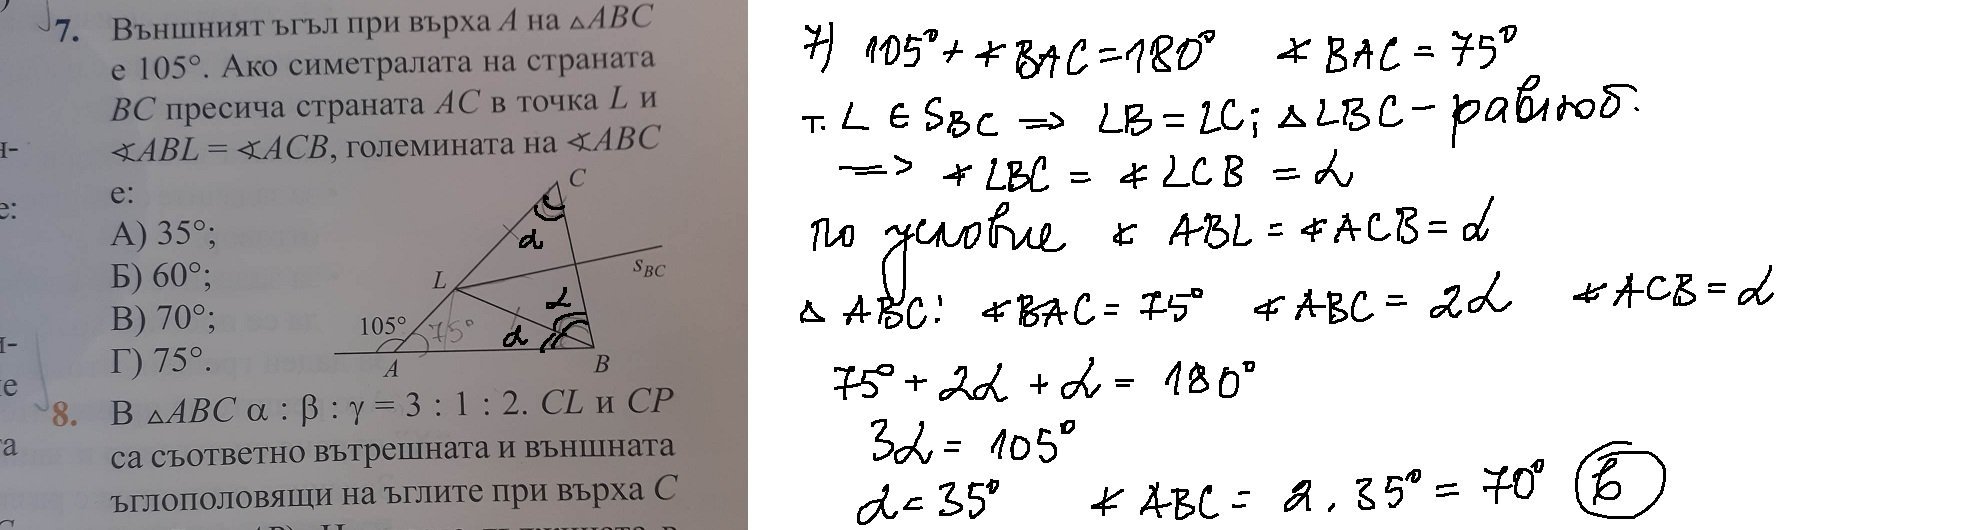 7. Външният ъгъл при върха A на △ABC
е 105°. Ако симетралата на страната
BC пресича страната AC в точка L и
∢ABL = ∢ACB, големината на ∢ABC
е:
А) 35°;
Б) 60°;
В) 70°;
Г) 75°.
C
α
L
s_BC
α
105°
75°
α
A
B
8. В △ABC α : β : γ = 3 : 1 : 2. CL и CP
са съответно вътрешната и външната
ъглополовящи на ъглите при върха C
7) 105° + ∢BAC = 180° ∢BAC = 75°
т. L ∈ S_BC ⇒ LB = LC; △LBC – равноб.
⇒ ∢LBC = ∢LCB = α
по условие ∢ABL = ∢ACB = α
△ABC: ∢BAC = 75° ∢ABC = 2α ∢ACB = α
75° + 2α + α = 180°
3α = 105°
α = 35° ∢ABC = 2 . 35° = 70° В